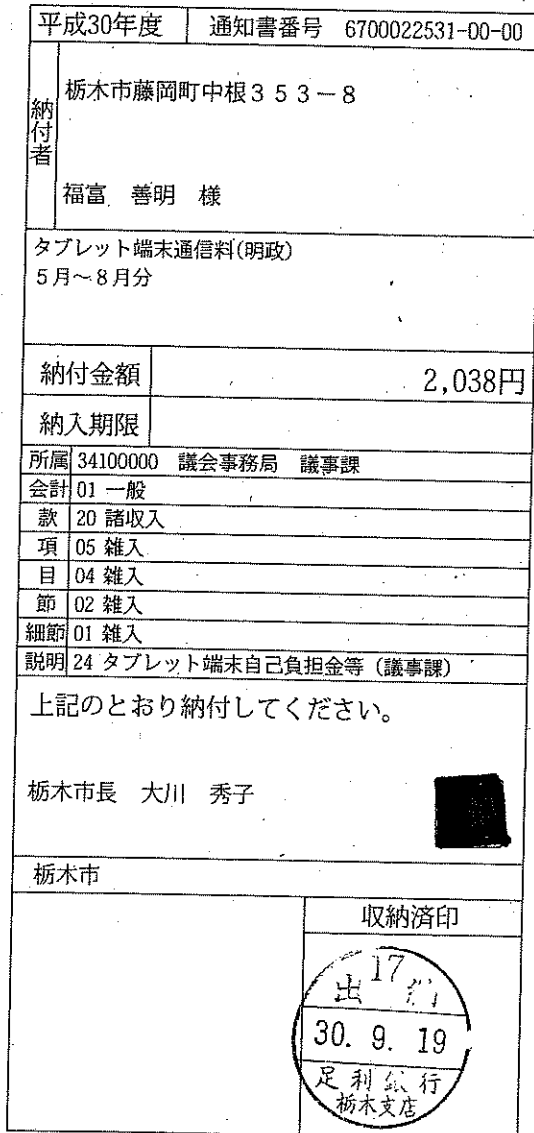 平成30年度 通知書番号 6700022531-00-00
納付者
栃木市藤岡町中根353-8
福富 善明 様
タブレット端末通信料(明政)
5月~8月分
納付金額 2,038円
納入期限
所属 34100000 議会事務局 議事課
会計 01 一般
款 20 諸収入
項 05 雑入
目 04 雑入
節 02 雑入
細節 01 雑入
説明 24 タブレット端末自己負担金等 (議事課)
上記のとおり納付してください。
栃木市長 大川 秀子
栃木市
収納済印
17
出納
30. 9. 19
足利銀行
栃木支店